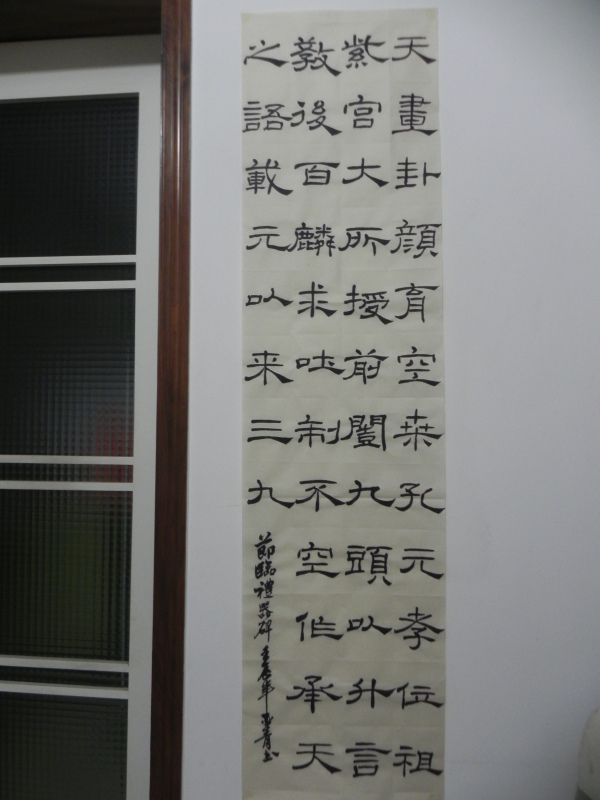 天畫卦顏育空桒孔元孝位祖
紫宮大所授前闓九頭以升言
教後百麟求吐制不空作承天
之語載元以来三九
節臨禮器碑壬辰年